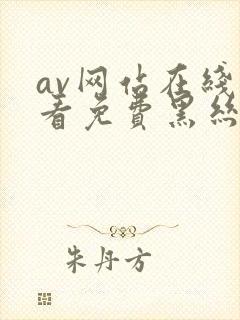 av网站在线
看免费黑丝
朱丹方